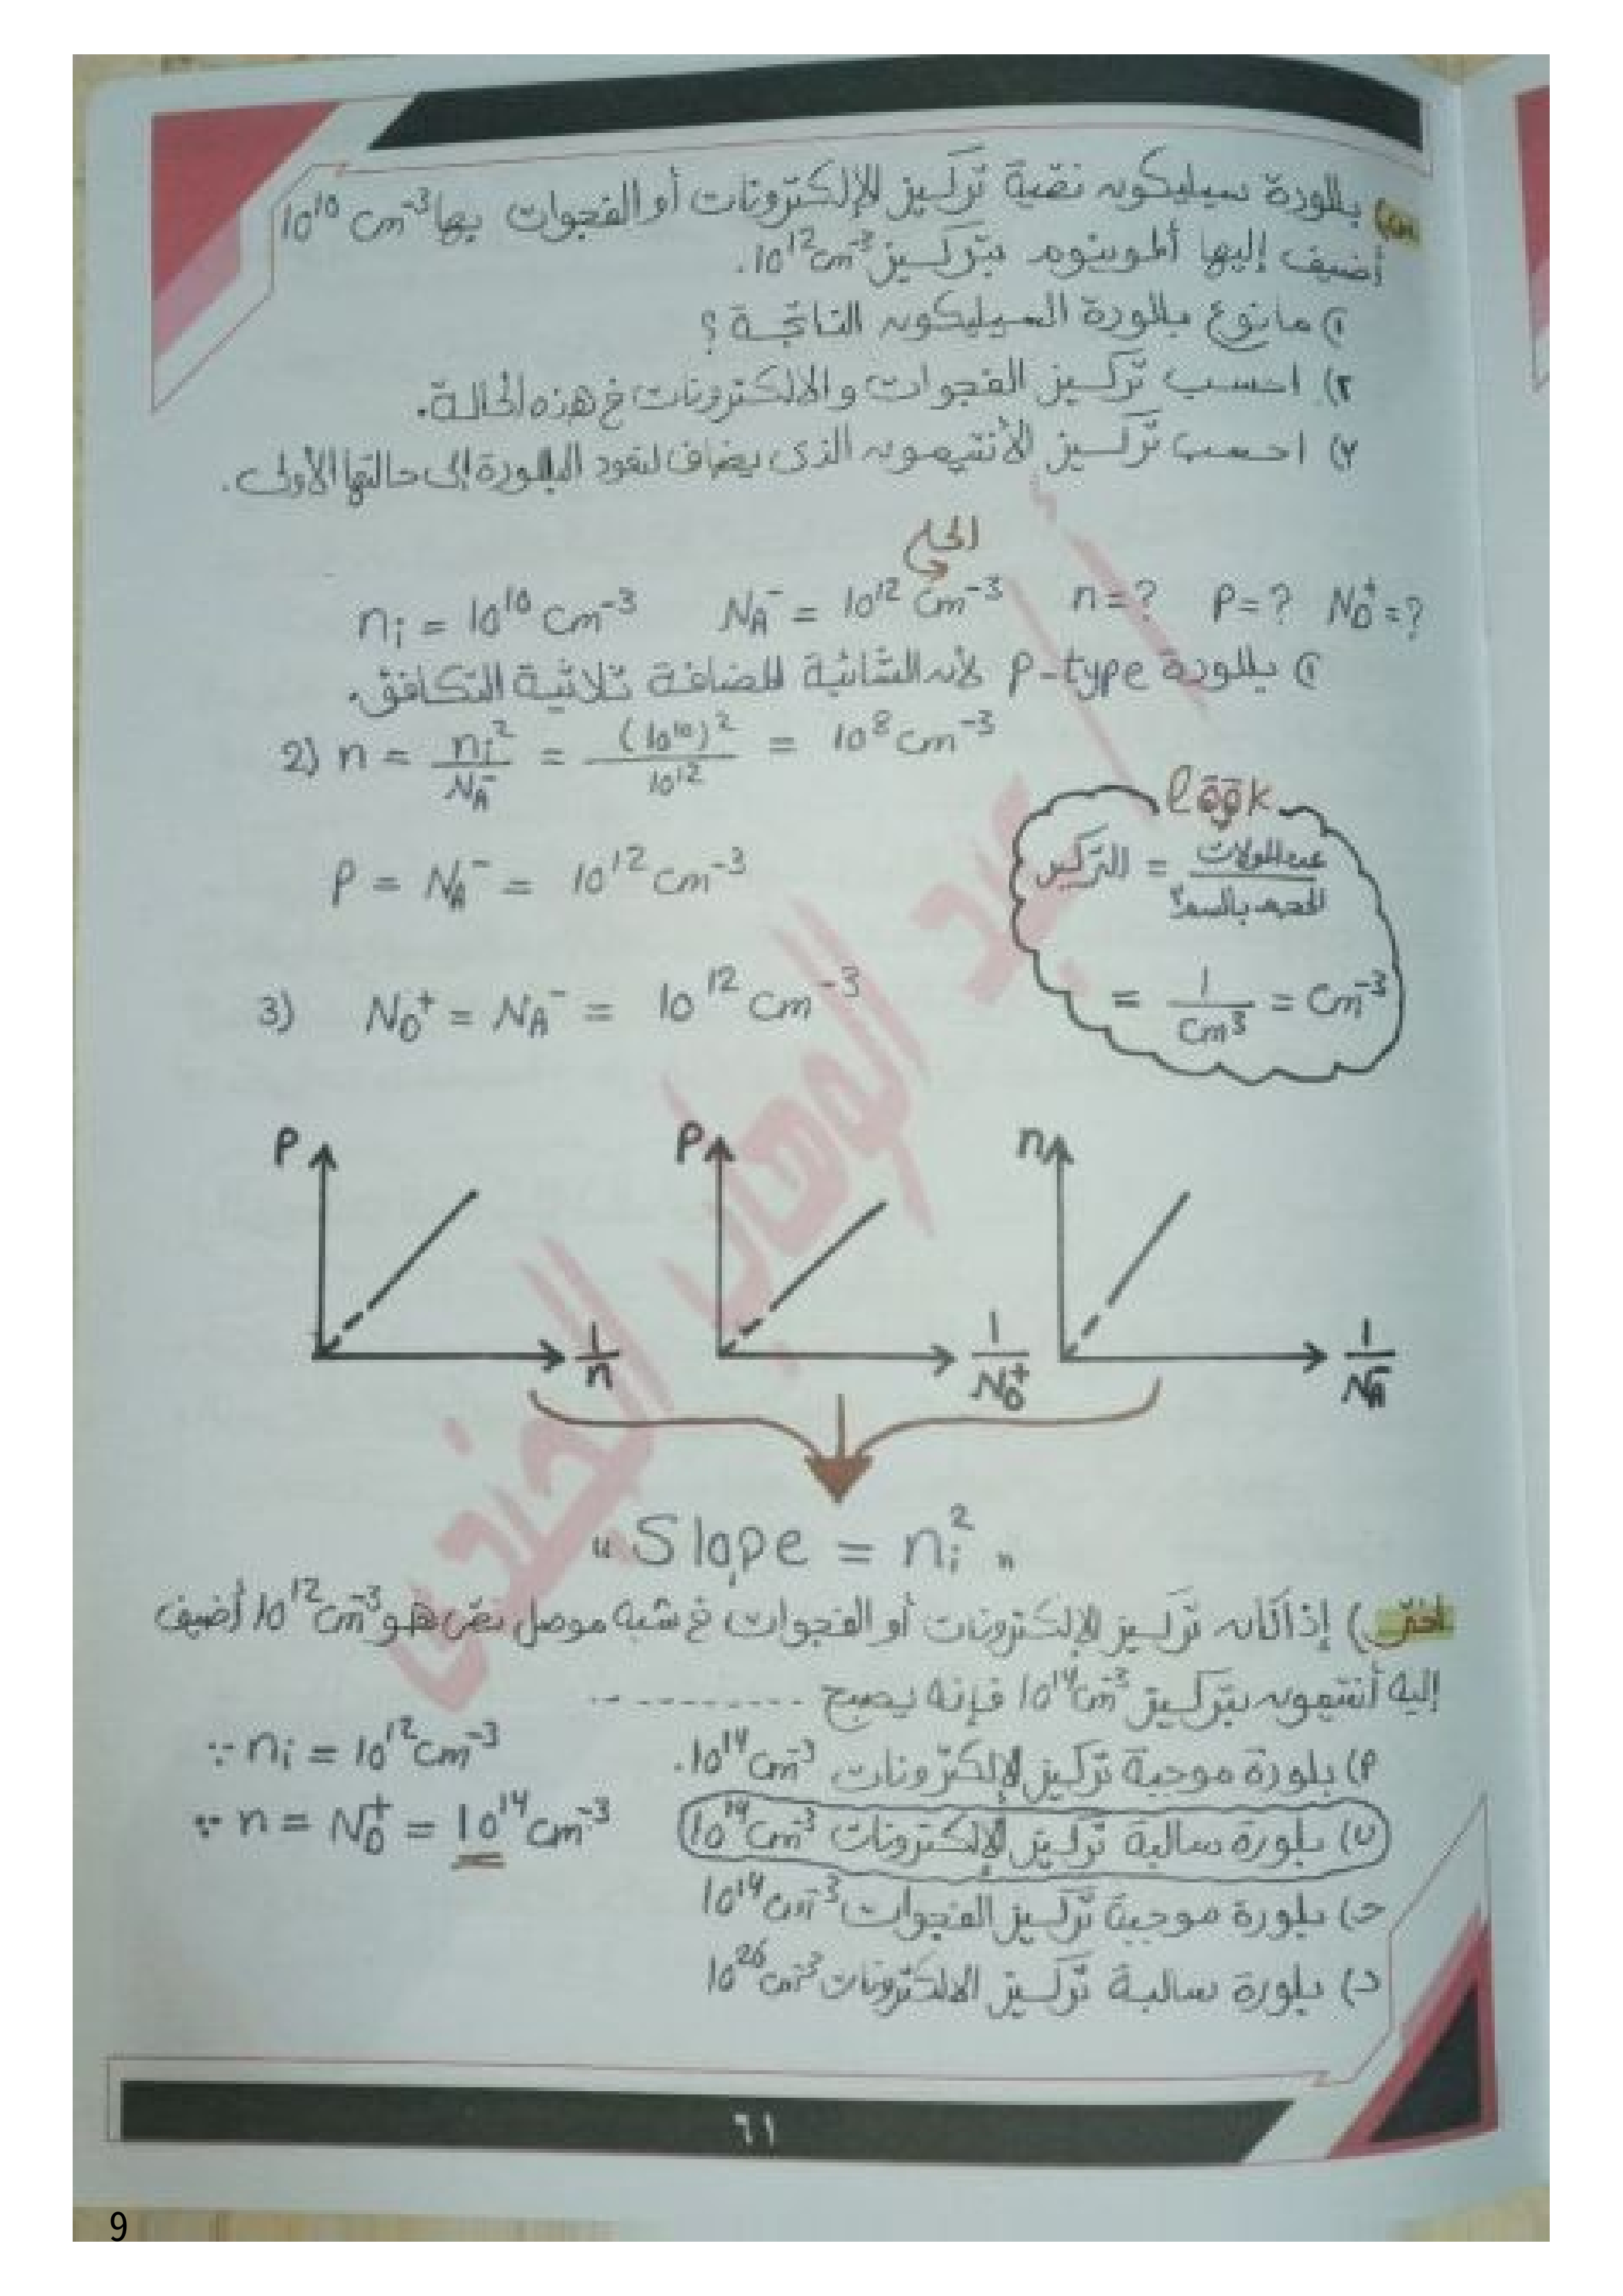 س) بللورة سيليكون نقية تركيز الإلكترونات أو الفجوات بها 10¹⁰ cm⁻³
أضيف إليها ألومنيوم بتركيز 10¹² cm⁻³.
١) ما نوع بللورة السيليكون الناتجة ؟
٢) احسب تركيز الفجوات والالكترونات في هذه الحالة.
٣) احسب تركيز الأنتيمون الذى يضاف لتعود البللورة إلى حالتها الأولى.
الحل
nᵢ = 10¹⁰ cm⁻³ N_A⁻ = 10¹² cm⁻³ n = ? P = ? N_D⁺ = ?
١) بللورة P-type لأن الشائبة المضافة ثلاثية التكافؤ.
2) n = nᵢ² / N_A⁻ = (10¹⁰)² / 10¹² = 10⁸ cm⁻³
P = N_A⁻ = 10¹² cm⁻³
look
التركيز = عدد المولات / الحجم بالسم³
= 1 / cm³ = cm⁻³
3) N_D⁺ = N_A⁻ = 10¹² cm⁻³
P 1/n
P 1/N_D⁺
n 1/N_A⁻
"Slope = nᵢ²"
اختر) إذا كان تركيز الإلكترونات أو الفجوات في شبه موصل نقى هو 10¹² cm⁻³ أضيف
إليه أنتيمون بتركيز 10¹⁴ cm⁻³ فإنه يصبح ..........
أ) بلورة موجبة تركيز الإلكترونات 10¹⁴ cm⁻³.
ب) بلورة سالبة تركيز الإلكترونات 10¹⁴ cm⁻³
ج) بلورة موجبة تركيز الفجوات 10¹⁴ cm⁻³
د) بلورة سالبة تركيز الالكترونات 10²⁶ cm⁻³
∵ nᵢ = 10¹² cm⁻³
∵ n = N_D⁺ = 10¹⁴ cm⁻³
٦١
9